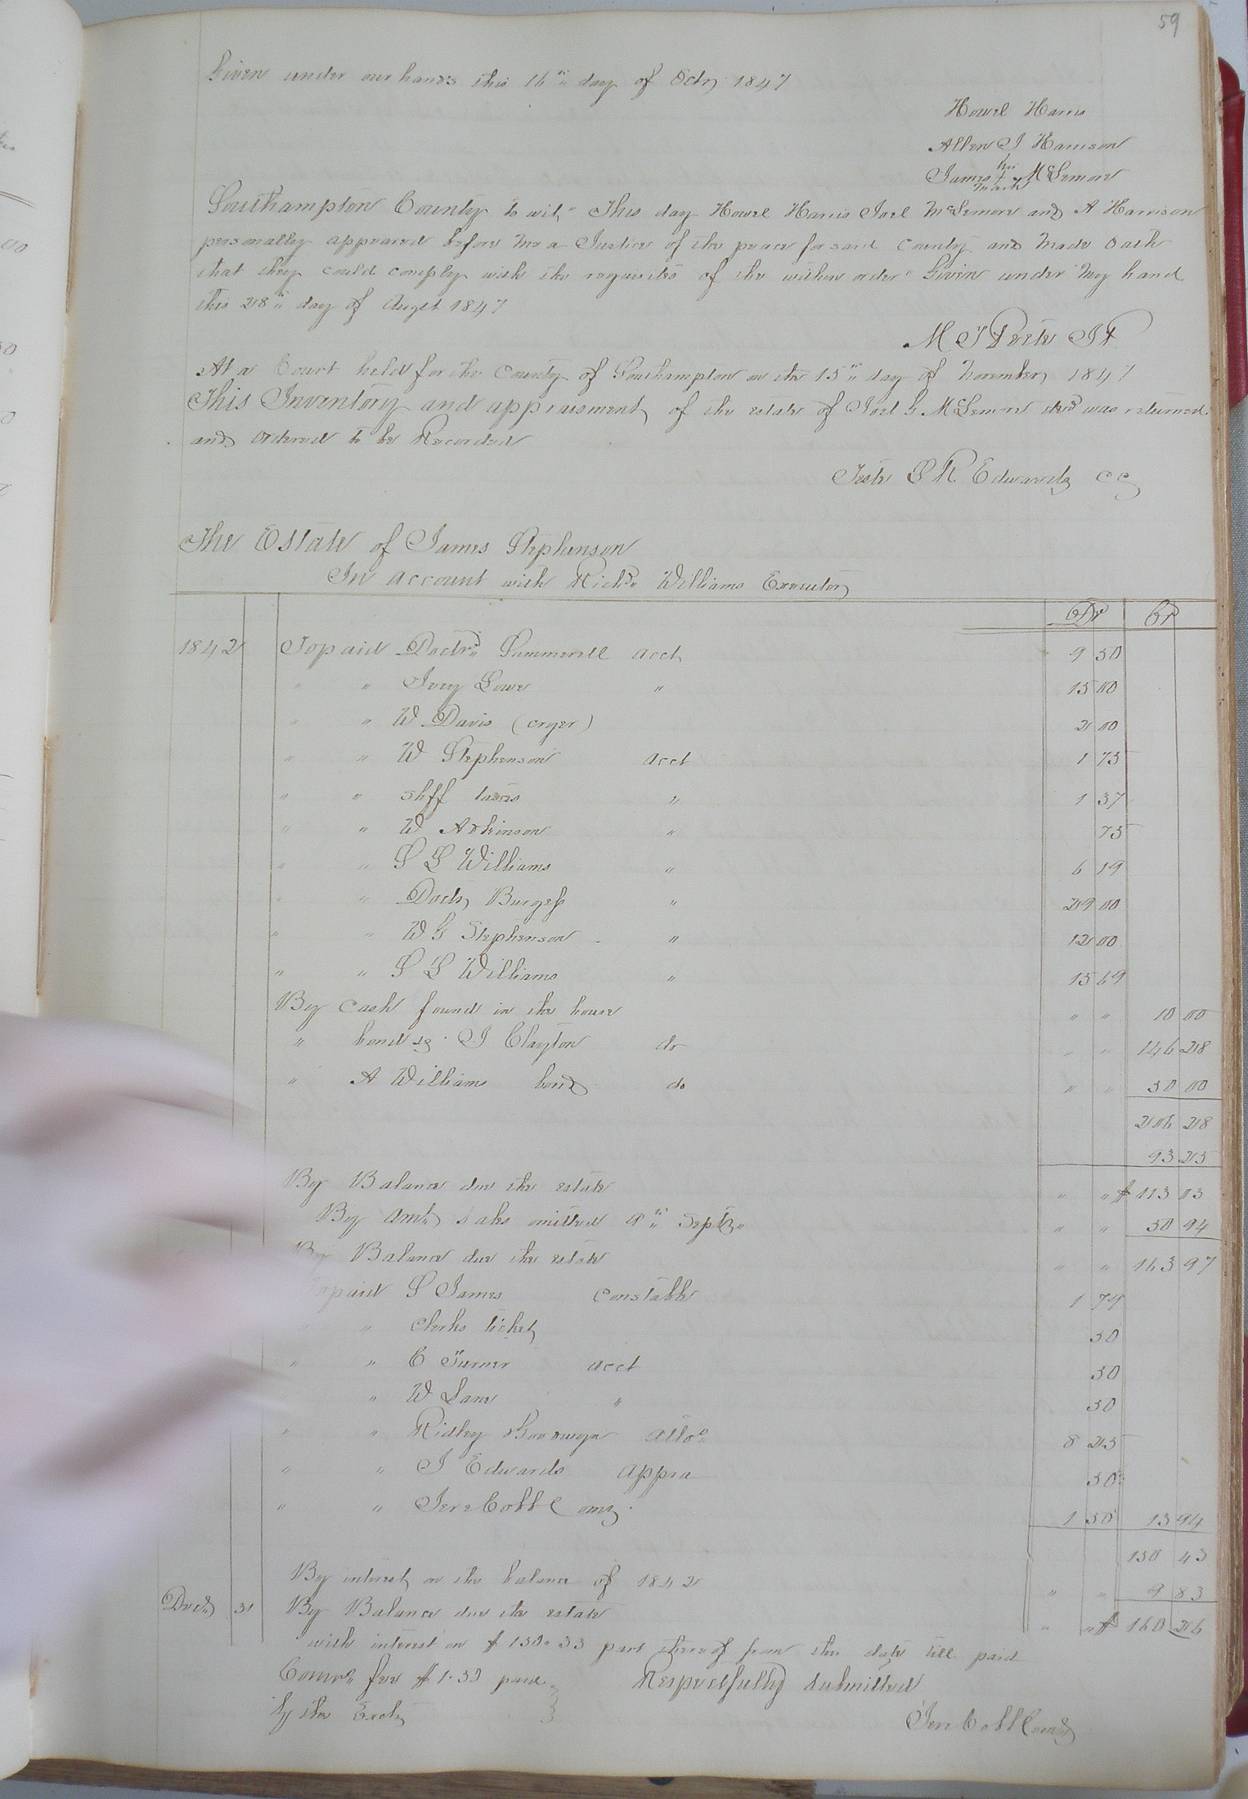 59
Given under our hands this 16th day of Octr 1847
Howel Harris
Allen J Harrison
his
James + McLemore
mark
Southampton County to wit" This day Howel Harris Joel McLemore and A Harrison
personally appeared before me a Justice of the peace for said County and made Oath
that they could comply with the requisites of the within order" Given under my hand
this 28th day of Augst 1847
M J Porter JP
At a Court held for the County of Southampton on the 15th day of November 1847
This Inventory and appraisement of the estate of Joel G McLemore decd was returned
and ordered to be Recorded
Teste L R Edwards CC
The Estate of James Stephenson
In account with Richd Williams Executor
Dr Cr
1842 To paid Doctr Summerell acct 9 50
" " Ivey Lowe " 15 00
" " W Davis (cryer) 2 00
" " W Stephenson acct 1 75
" " Shff taxes " 1 37
" " W Atkinson " 75
" " S L Williams " 6 19
" " Doctr Burgess " 29 00
" " W G Stephenson " 12 00
" " S L Williams " 15 69
By cash found in the house " " 10 00
" bond sg. J Clayton do " " 146 28
" A Williams bond do " " 50 00
206 28
93 25
By Balance due the estate " " $113 03
By Amt Sales omitted 9th Septr " " 50 94
By Balance due the estate " " 163 97
To paid S James Constable 1 79
" " Clerks ticket 50
" " E Turner acct 50
" " W Lane " 50
" " Ridley allo 8 25
" " J Edwards Appra 50
" " Jere Cobb Comr. 1 50 13 94
150 43
By interest on the balance of 1842 " " 9 83
Decr 31 By Balance due the estate " " $160 26
with interest on $150.33 part thereof from this date till paid
Comrs fee $1.50 paid
by the Exctr
Respectfully submitted
Jere Cobb Comr